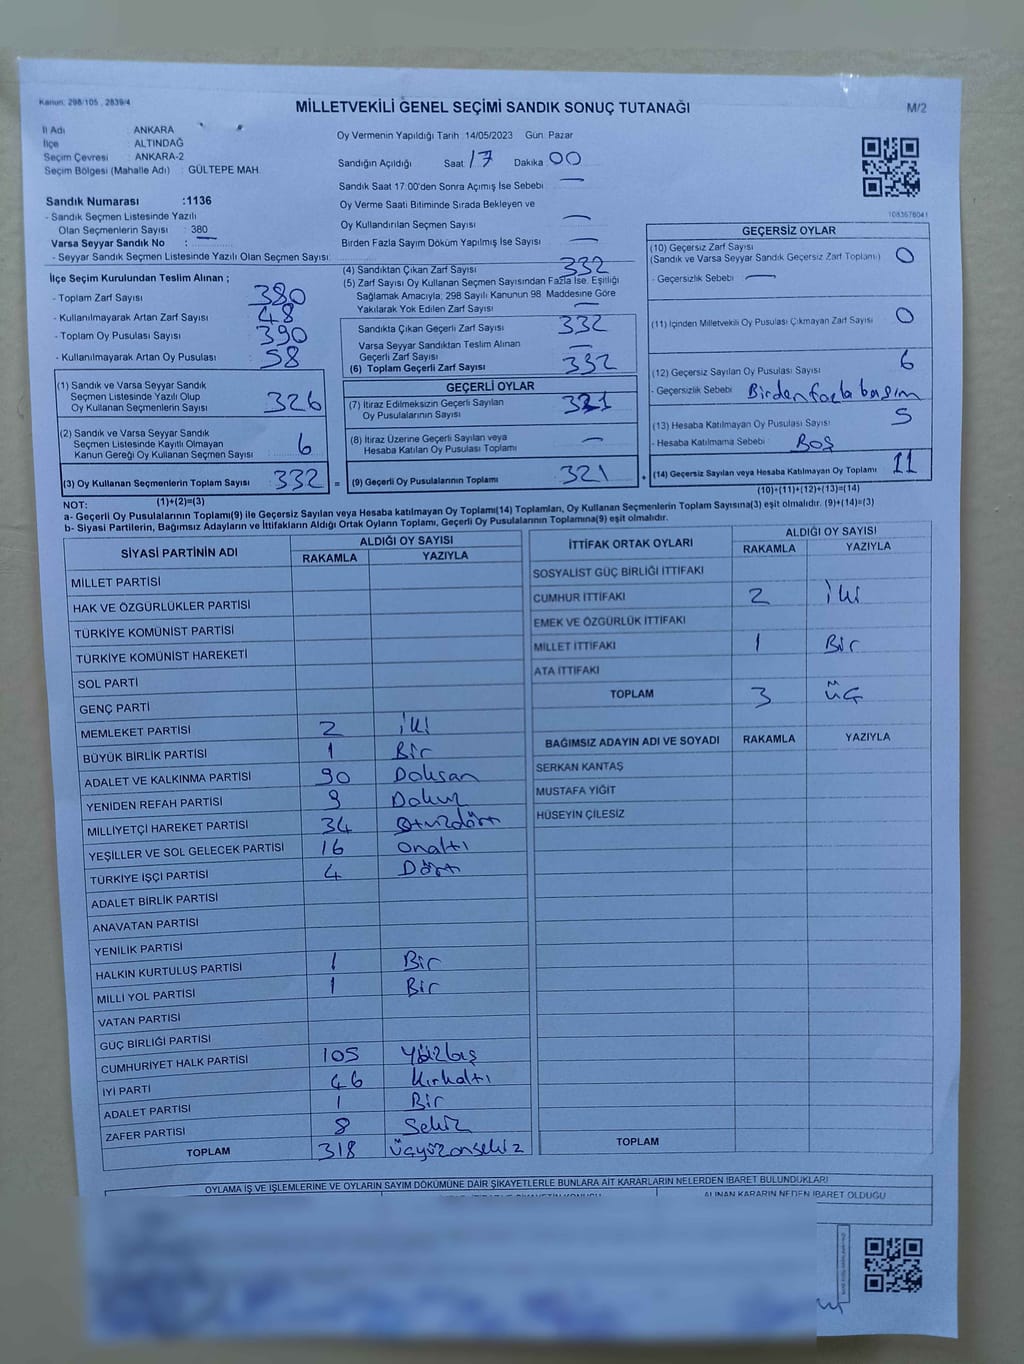 Kanun: 298/105 , 2839/4
MİLLETVEKİLİ GENEL SEÇİMİ SANDIK SONUÇ TUTANAĞI
M/2
İl Adı : ANKARA
İlçe : ALTINDAĞ
Seçim Çevresi : ANKARA-2
Seçim Bölgesi (Mahalle Adı) : GÜLTEPE MAH.
Sandık Numarası :1136
- Sandık Seçmen Listesinde Yazılı
Olan Seçmenlerin Sayısı : 380
Varsa Seyyar Sandık No :
- Seyyar Sandık Seçmen Listesinde Yazılı Olan Seçmen Sayısı:
Oy Vermenin Yapıldığı Tarih 14/05/2023 Gün Pazar
Sandığın Açıldığı Saat 17 Dakika 00
Sandık Saat 17:00'den Sonra Açımış İse Sebebi —
Oy Verme Saati Bitiminde Sırada Bekleyen ve
Oy Kullandırılan Seçmen Sayısı —
Birden Fazla Sayım Döküm Yapılmış İse Sayısı —
1083678041
İlçe Seçim Kurulundan Teslim Alınan ;
- Toplam Zarf Sayısı 380
- Kullanılmayarak Artan Zarf Sayısı 48
- Toplam Oy Pusulası Sayısı 390
- Kullanılmayarak Artan Oy Pusulası 58
(1) Sandık ve Varsa Seyyar Sandık
Seçmen Listesinde Yazılı Olup
Oy Kullanan Seçmenlerin Sayısı 326
(2) Sandık ve Varsa Seyyar Sandık
Seçmen Listesinde Kayıtlı Olmayan
Kanun Gereği Oy Kullanan Seçmen Sayısı 6
(3) Oy Kullanan Seçmenlerin Toplam Sayısı 332
(1)+(2)=(3)
(4) Sandıktan Çıkan Zarf Sayısı 332
(5) Zarf Sayısı Oy Kullanan Seçmen Sayısından Fazla İse, Eşitliği
Sağlamak Amacıyla; 298 Sayılı Kanunun 98. Maddesine Göre
Yakılarak Yok Edilen Zarf Sayısı —
Sandıkta Çıkan Geçerli Zarf Sayısı 332
Varsa Seyyar Sandıktan Teslim Alınan
Geçerli Zarf Sayısı —
(6) Toplam Geçerli Zarf Sayısı 332
GEÇERLİ OYLAR
(7) İtiraz Edilmeksizin Geçerli Sayılan
Oy Pusulalarının Sayısı 321
(8) İtiraz Üzerine Geçerli Sayılan veya
Hesaba Katılan Oy Pusulası Toplamı —
= (9) Geçerli Oy Pusulalarının Toplamı 321
GEÇERSİZ OYLAR
(10) Geçersiz Zarf Sayısı
(Sandık ve Varsa Seyyar Sandık Geçersiz Zarf Toplamı) 0
- Geçersizlik Sebebi —
(11) İçinden Milletvekili Oy Pusulası Çıkmayan Zarf Sayısı 0
(12) Geçersiz Sayılan Oy Pusulası Sayısı 6
- Geçersizlik Sebebi Birden fazla basım
(13) Hesaba Katılmayan Oy Pusulası Sayısı 5
- Hesaba Katılmama Sebebi Boş
+ (14) Geçersiz Sayılan veya Hesaba Katılmayan Oy Toplamı 11
(10)+(11)+(12)+(13)=(14)
NOT:
a- Geçerli Oy Pusulalarının Toplamı(9) ile Geçersiz Sayılan veya Hesaba katılmayan Oy Toplamı(14) Toplamları, Oy Kullanan Seçmenlerin Toplam Sayısına(3) eşit olmalıdır. (9)+(14)=(3)
b- Siyasi Partilerin, Bağımsız Adayların ve İttifakların Aldığı Ortak Oyların Toplamı, Geçerli Oy Pusulalarının Toplamına(9) eşit olmalıdır.
SİYASİ PARTİNİN ADI ALDIĞI OY SAYISI
RAKAMLA YAZIYLA
MİLLET PARTİSİ
HAK VE ÖZGÜRLÜKLER PARTİSİ
TÜRKİYE KOMÜNİST PARTİSİ
TÜRKİYE KOMÜNİST HAREKETİ
SOL PARTİ
GENÇ PARTİ
MEMLEKET PARTİSİ 2 iki
BÜYÜK BİRLİK PARTİSİ 1 Bir
ADALET VE KALKINMA PARTİSİ 90 Doksan
YENİDEN REFAH PARTİSİ 9 Dokuz
MİLLİYETÇİ HAREKET PARTİSİ 34 Otuzdört
YEŞİLLER VE SOL GELECEK PARTİSİ 16 Onaltı
TÜRKİYE İŞÇİ PARTİSİ 4 Dört
ADALET BİRLİK PARTİSİ
ANAVATAN PARTİSİ
YENİLİK PARTİSİ
HALKIN KURTULUŞ PARTİSİ 1 Bir
MİLLİ YOL PARTİSİ 1 Bir
VATAN PARTİSİ
GÜÇ BİRLİĞİ PARTİSİ
CUMHURİYET HALK PARTİSİ 105 Yüzbeş
İYİ PARTİ 46 Kırkaltı
ADALET PARTİSİ 1 Bir
ZAFER PARTİSİ 8 Sekiz
TOPLAM 318 Üçyüzonsekiz
İTTİFAK ORTAK OYLARI ALDIĞI OY SAYISI
RAKAMLA YAZIYLA
SOSYALİST GÜÇ BİRLİĞİ İTTİFAKI
CUMHUR İTTİFAKI 2 iki
EMEK VE ÖZGÜRLÜK İTTİFAKI
MİLLET İTTİFAKI 1 Bir
ATA İTTİFAKI
TOPLAM 3 üç
BAĞIMSIZ ADAYIN ADI VE SOYADI RAKAMLA YAZIYLA
SERKAN KANTAŞ
MUSTAFA YİĞİT
HÜSEYİN ÇİLESİZ
TOPLAM
OYLAMA İŞ VE İŞLEMLERİNE VE OYLARIN SAYIM DÖKÜMÜNE DAİR ŞİKAYETLERLE BUNLARA AİT KARARLARIN NELERDEN İBARET BULUNDUKLARI
ALINAN KARARIN NEDEN İBARET OLDUĞU